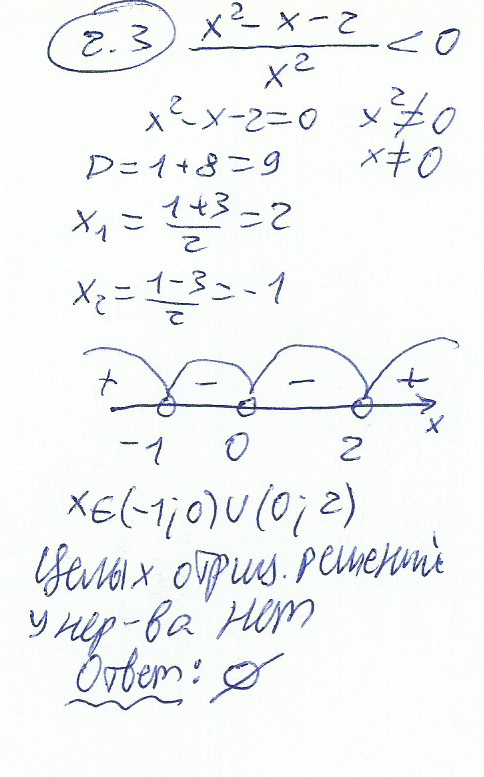 2.3 (x² - x - 2)/x² < 0
x² - x - 2 = 0 x² ≠ 0
D = 1 + 8 = 9 x ≠ 0
x₁ = (1+3)/2 = 2
x₂ = (1-3)/2 = -1
+ - - +
-1 0 2 x
x ∈ (-1; 0) ∪ (0; 2)
Целых отриц. решений
у нер-ва нет
Ответ: ∅